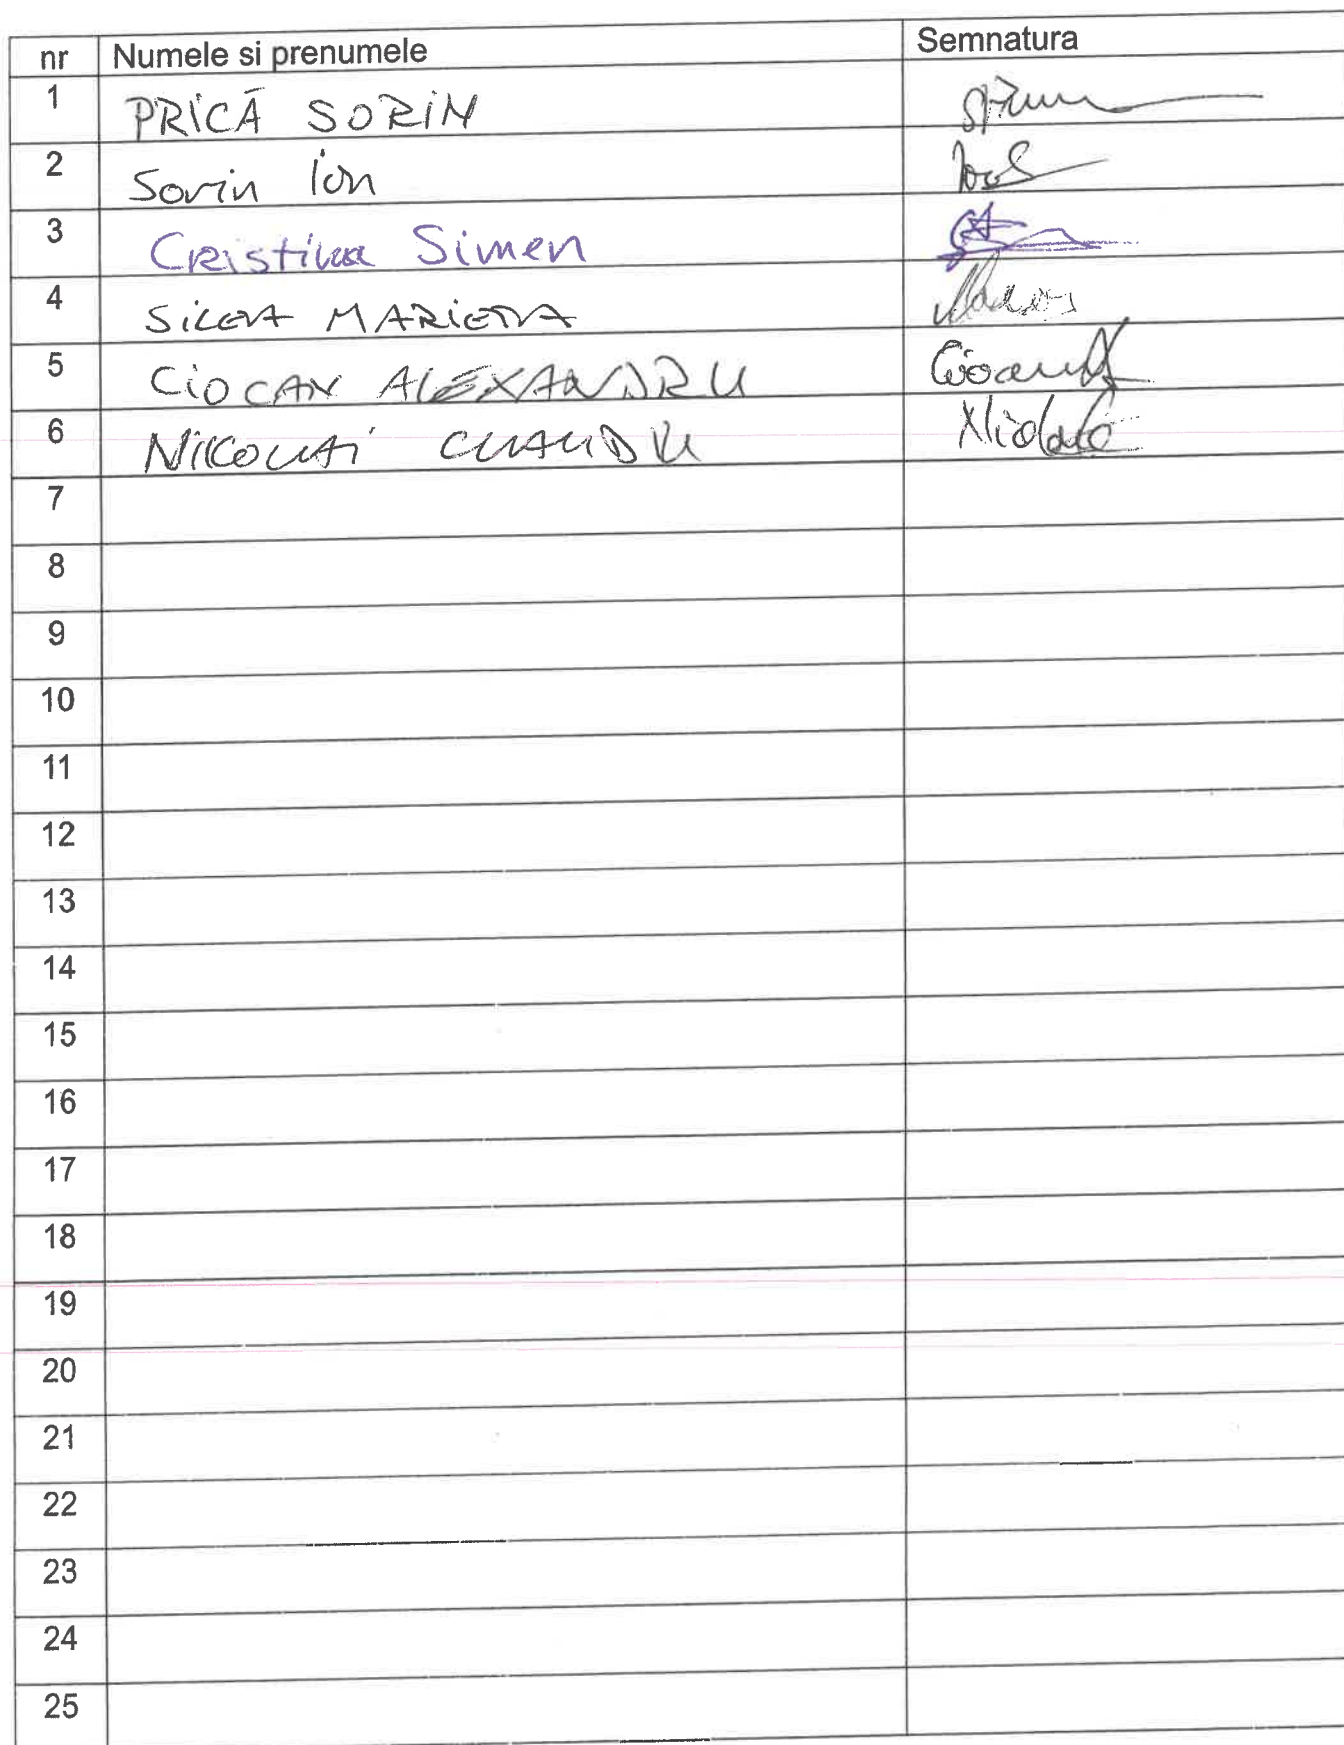 nr Numele si prenumele Semnatura
1 PRICĂ SORIN
2 Sorin Ion
3 Cristina Simen
4 MARIETA
5 CIOCAN ALEXANDRU
6 CLAUDIU
7
8
9
10
11
12
13
14
15
16
17
18
19
20
21
22
23
24
25